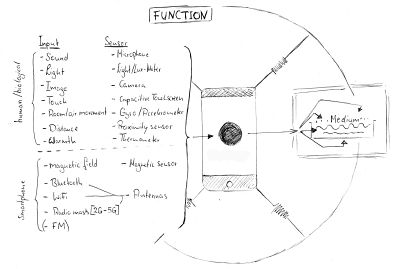 FUNCTION
Input
Sensor
- Sound
- Microphone
- Light
- Light/Lux-Meter
- Image
- Camera
- Touch
- Capacitive Touchscreen
movement
- Gyro/Accelerometer
- Distance
- Proximity sensor
- Warmth
- Thermometer
human/biological
- magnetic field
- Magnetic sensor
- Bluetooth
- WiFi
- Antennas
- Radio mast [2G-5G]
(- FM)
smartphone
Medium